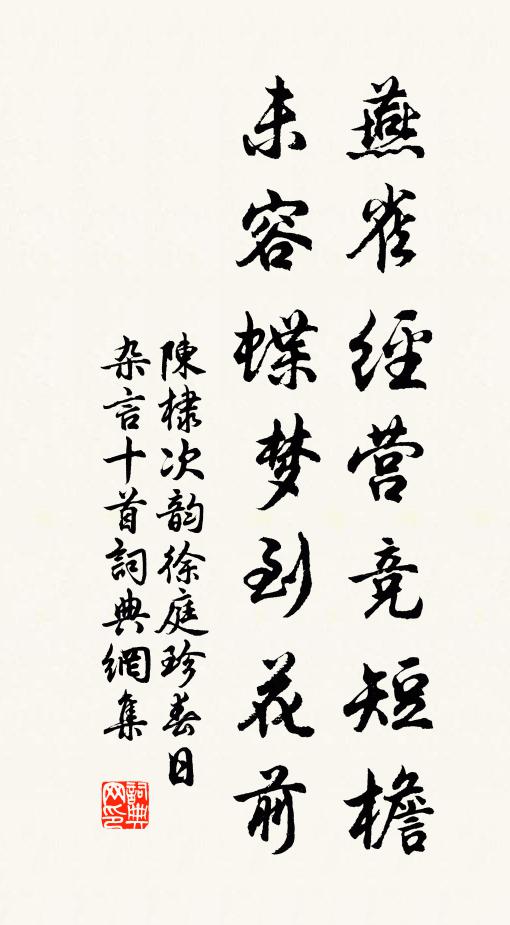 燕雀經营竞短檐
未容蝶梦到花前
陳棣次韵徐庭珍春日
杂言十首詞典網集
詞典网印